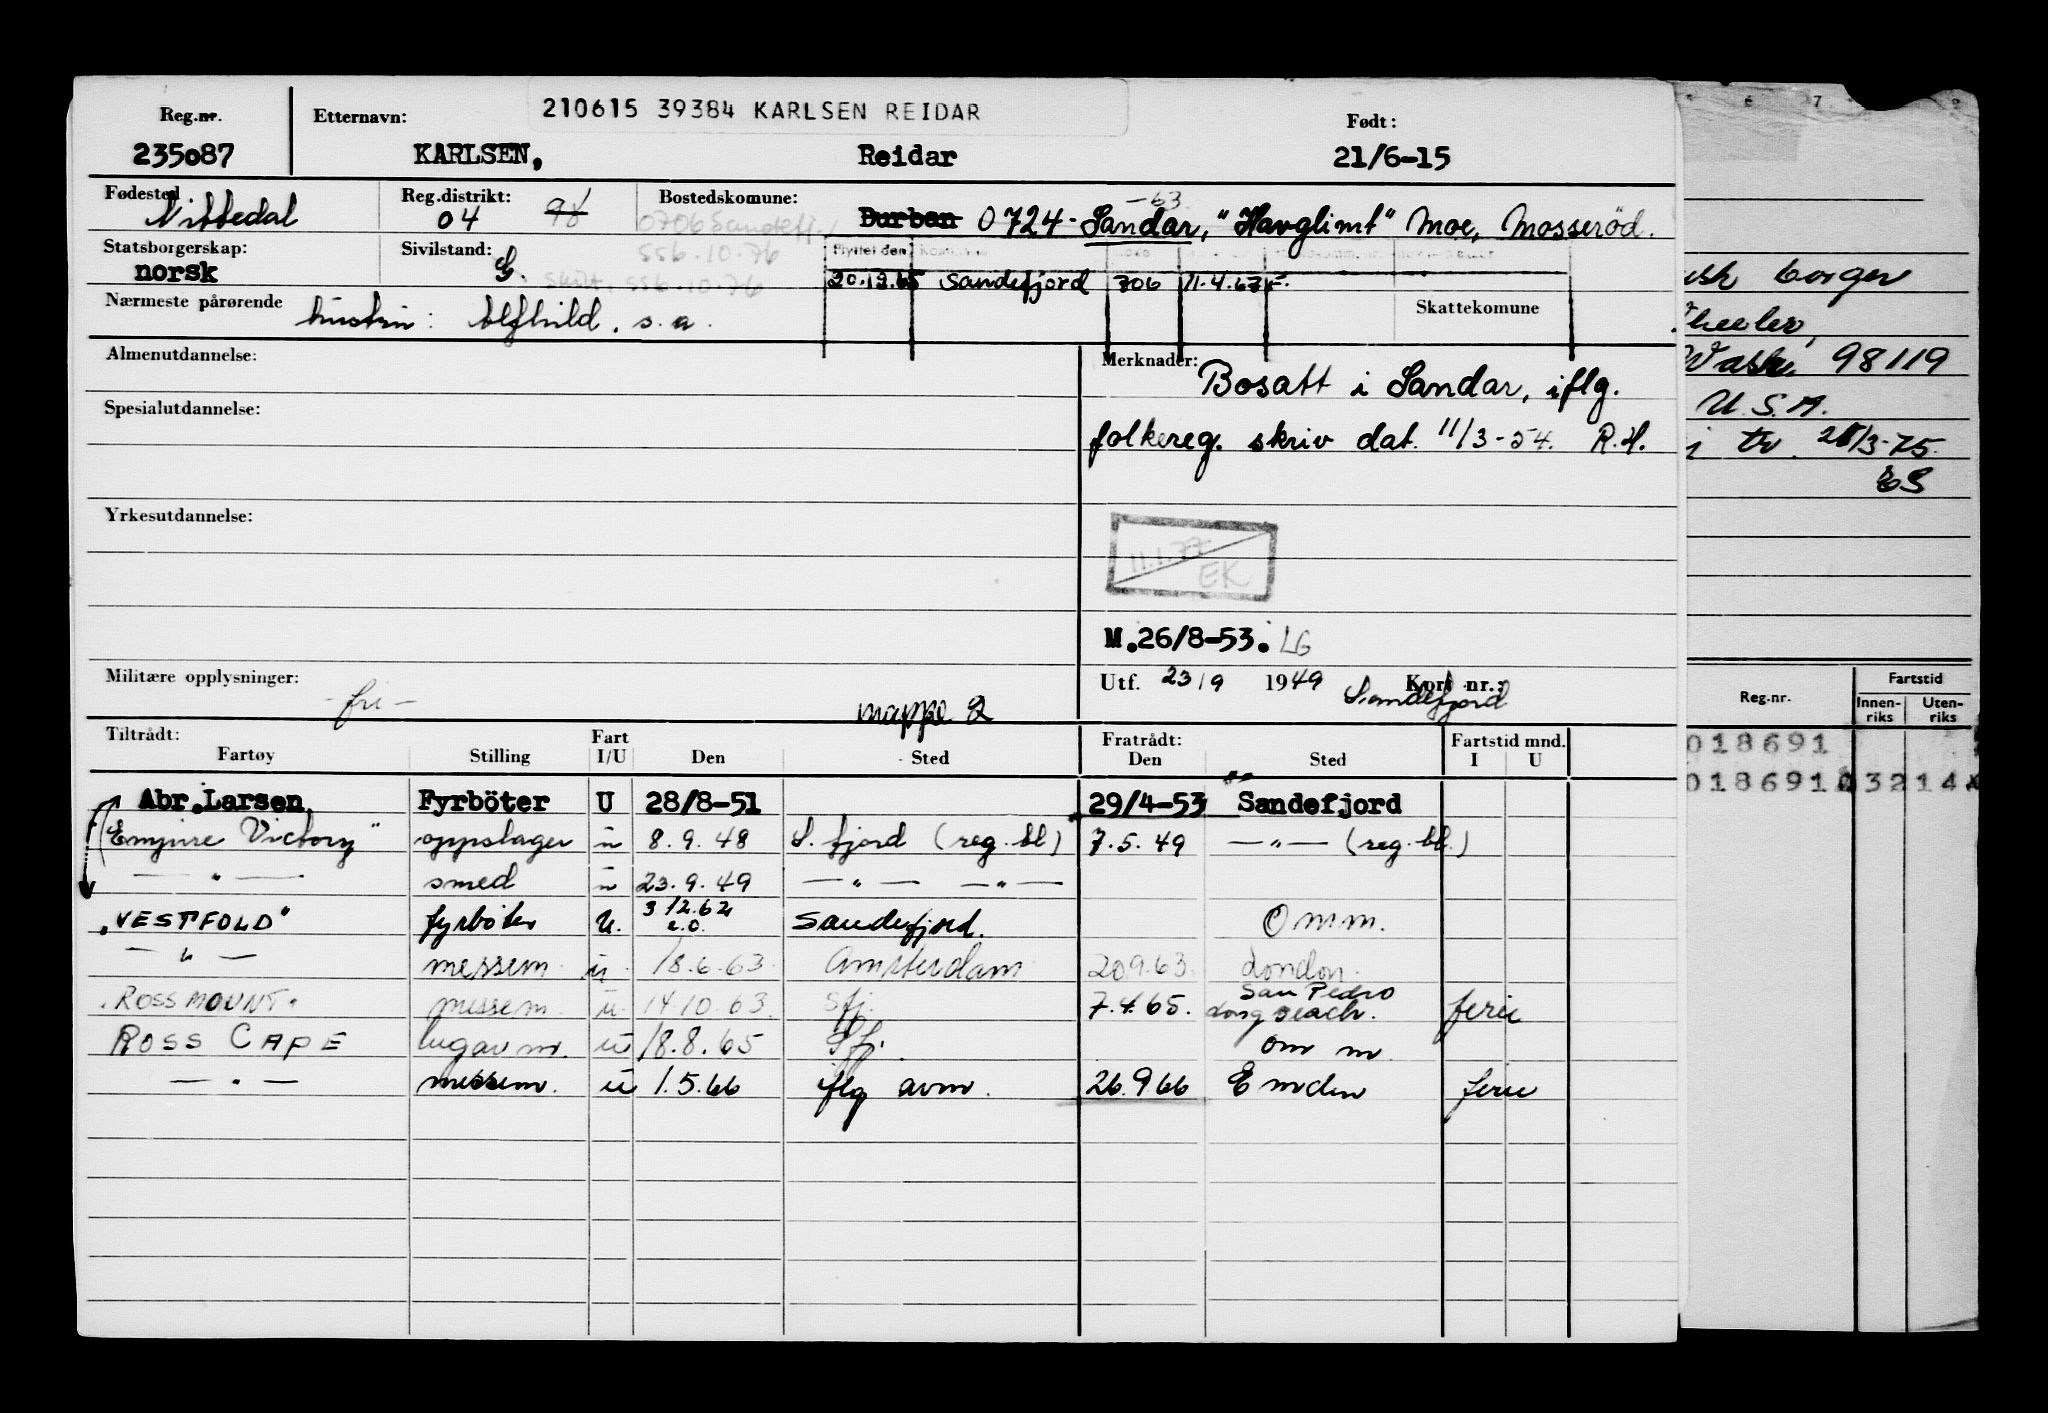 210615 39384 KARLSEN REIDAR
Reg.nr. Etternavn: Født:
235087 KARLSEN, Reidar 21/6-15
Fødested Reg.distrikt: Bostedskomune: -63
Nittedal 04 98 Durban 0724- Sandar, "Havglimt" Moe, Mosserød.
0706 Sandefj.
Statsborgerskap: Sivilstand: 556.10.76 Flyttet den
norsk G. skilt. 556.10.76 20.12.65 Sandefjord 706 11.4.67 F.
Nærmeste pårørende Skattekomune
hustru: Alfhild. s.a.
Almenutdannelse: Merknader:
Bosatt i Sandar, iflg.
Spesialutdannelse:
folkereg. skriv dat. 11/3-54. R.H.
Yrkesutdannelse:
11.1.77
EK
M.26/8-53. LG
Militære opplysninger: Utf. 23/9 1949 Kort nr.:
-fri- mappe 2 Sandefjord
Tiltrådt: Fart Fratrådt: Fartstid mnd.
Fartøy Stilling I/U Den Sted Den Sted I U
Abr.Larsen Fyrböter U 28/8-51 29/4-53 Sandefjord
"Empire Victory" oppslager u 8.9.48 S.fjord (reg.bl) 7.5.49 — " — (reg.bl.)
— " — smed u 23.9.49 — " — — " —
"VESTFOLD" fyrbøter U. 3/12.62 e.o. Sandefjord. Omm.
— " — messem. u. 18.6.63. Amsterdam 20.9.63. London.
"ROSSMOUNT" messem. u. 14.10.63. Sfj. 7.4.65. San Pedro Long Beach. ferie
ROSS CAPE lugarm. u 18.8.65 Sfj. om m.
— " — messem. u 1.5.66 iflg avm. 26.9.66 Emden ferie
6 7
borger
Wheeler,
Wash. 98119
U.S.A.
i tv. 25/3-75.
ES
Reg.nr. Fartstid
Innen-riks Uten-riks
018691
018691 03214